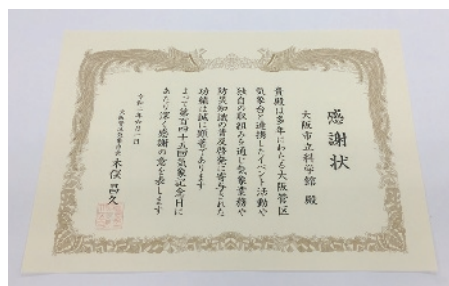 感謝状
大阪市立科学館 殿
貴殿は多年にわたる大阪管区
気象台と連携したイベント活動や
独自の取組みを通じ気象業務や
防災知識の普及啓発に寄与された
功績は誠に顕著であります
よって第百四十五回気象記念日に
あたり深く感謝の意を表します
令和二年六月一日
大阪管区気象台長 木俣昌久